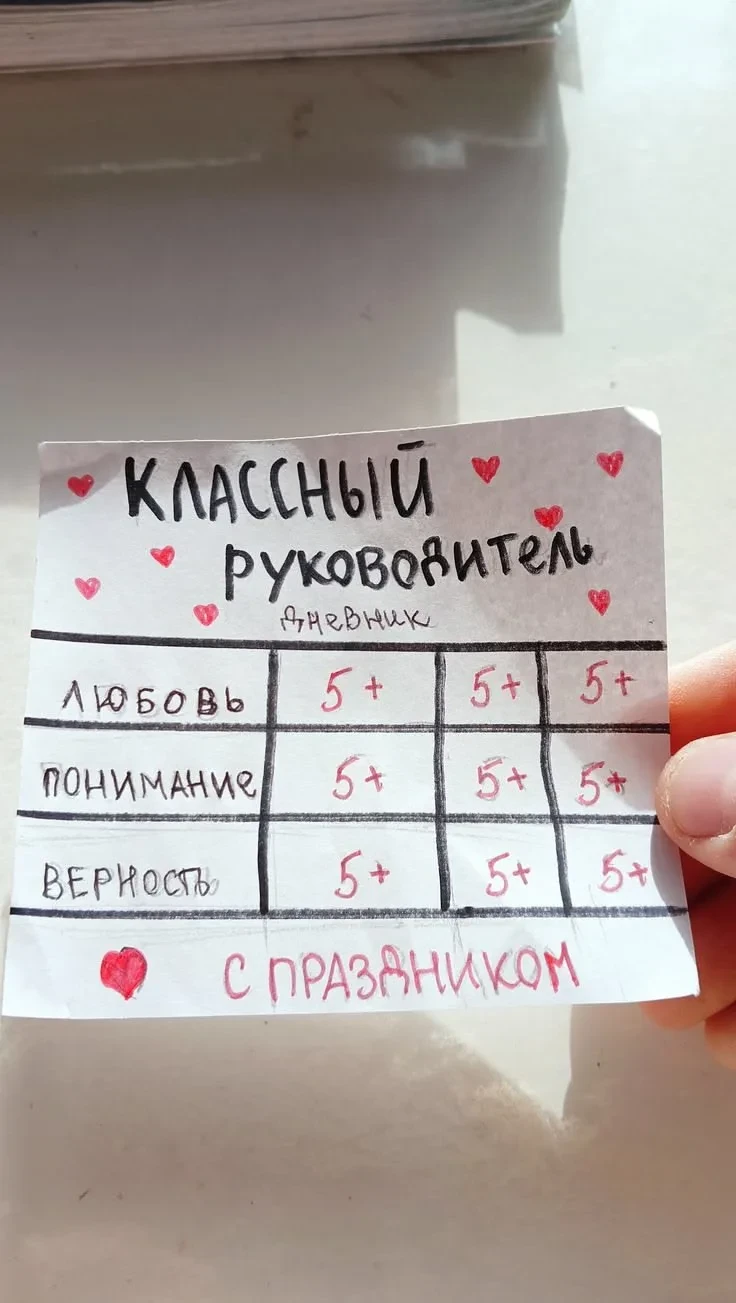 КЛАССНЫЙ
РУКОВОДИТЕЛЬ
дневник
ЛЮБОВЬ 5+ 5+ 5+
ПОНИМАНИЕ 5+ 5+ 5+
ВЕРНОСТЬ 5+ 5+ 5+
С ПРАЗДНИКОМ